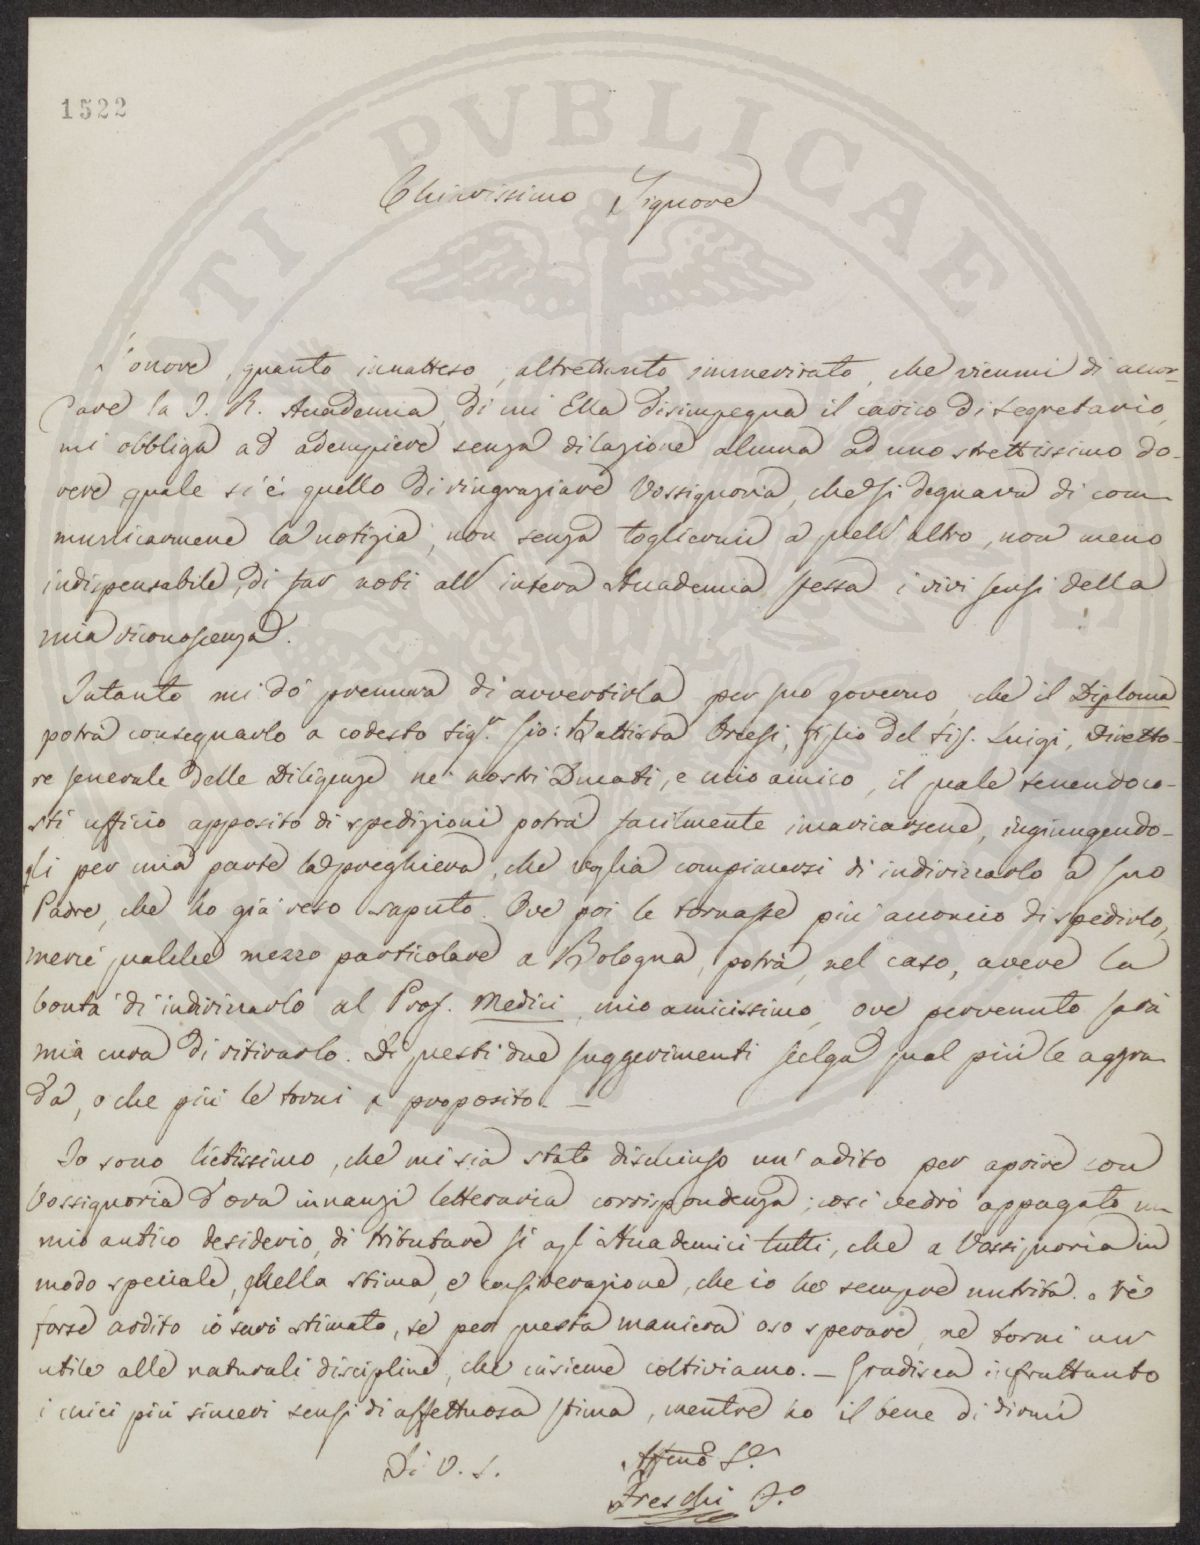 1522
Chiarissimo Signore
L'onore, quanto innatteso, altrettanto immeritato, che viemmi di accor-
dare la I. R. Accademia, di cui Ella disimpegna il carico di Segretario,
mi obbliga ad adempiere senza dilazione alcuna ad uno strettissimo do-
vere, quale si è quello di ringraziare Vossignoria, che si degnava di com-
municarmene la notizia, non senza togliermi a quell'altro, non meno
indispensabile, di far noti all'intera Accademia stessa i vivi sensi della
mia riconoscenza.
Intanto mi dò premura di avvertirla per suo governo, che il Diploma
potrà consegnarlo a codesto Sig.r Gio: Battista Orcesi, figlio del Sig. Luigi, Diretto-
re generale delle Diligenze ne' nostri Ducati, e mio amico, il quale tenendo co-
stì ufficio apposito di spedizioni potrà facilmente incaricarsene, ingiungendo-
gli per mia parte la preghiera, che voglia compiacersi di indirizzarlo a suo
Padre, che ho già reso saputo. Ove poi le tornasse più acconcio di spedirlo,
mercè qualche mezzo particolare a Bologna, potrà, nel caso, avere la
bontà di indirizzarlo al Prof. Medici, mio amicissimo, ove pervenuto sarà
mia cura di ritirarlo. Di questi due suggerimenti scelga qual più le aggra-
da, o che più le torni a proposito. —
Io sono lietissimo, che mi sia stato dischiuso un'adito per aprire con
Vossignoria d'ora innanzi letteraria corrispondenza; così vedrò appagato un
mio antico desiderio, di tributare sì agl'Accademici tutti, che a Vossignoria in
modo speciale, quella stima, e considerazione, che io ho sempre nutrita. Nè
forse ardito io sarò stimato, se per questa maniera oso sperare, ne torni un'
utile alle naturali discipline, che insieme coltiviamo. — Gradisca infrattanto
i miei più sinceri sensi di affettuosa stima, mentre ho il bene di dirmi
Di V. S.
Affmo S.e
Freschi F.o
PUBLICAE